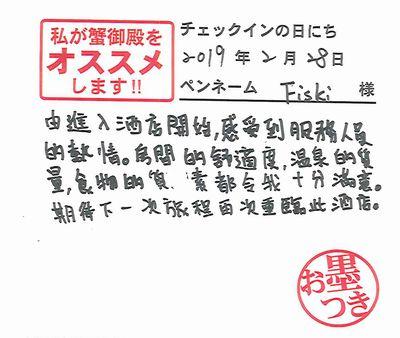 私が蟹御殿を
オススメ
します!!
チェックインの日にち
2019年2月28日
ペンネーム Fiski 様
由進入酒店開始,感受到服務人員
的熱情。房間的舒適度,溫泉的質
量,食物的質 素都令我十分滿意。
期待下一次旅程再次重臨此酒店。
墨
おつき